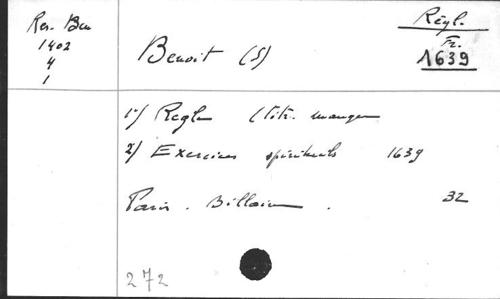 Res. Ben
1402
4
1
Benoit (S)
Règl.
Fr.
1639
1°/ Regle (titr. manque
2°/ Exercices spirituels 1639
Paris. Billaine. 32
272